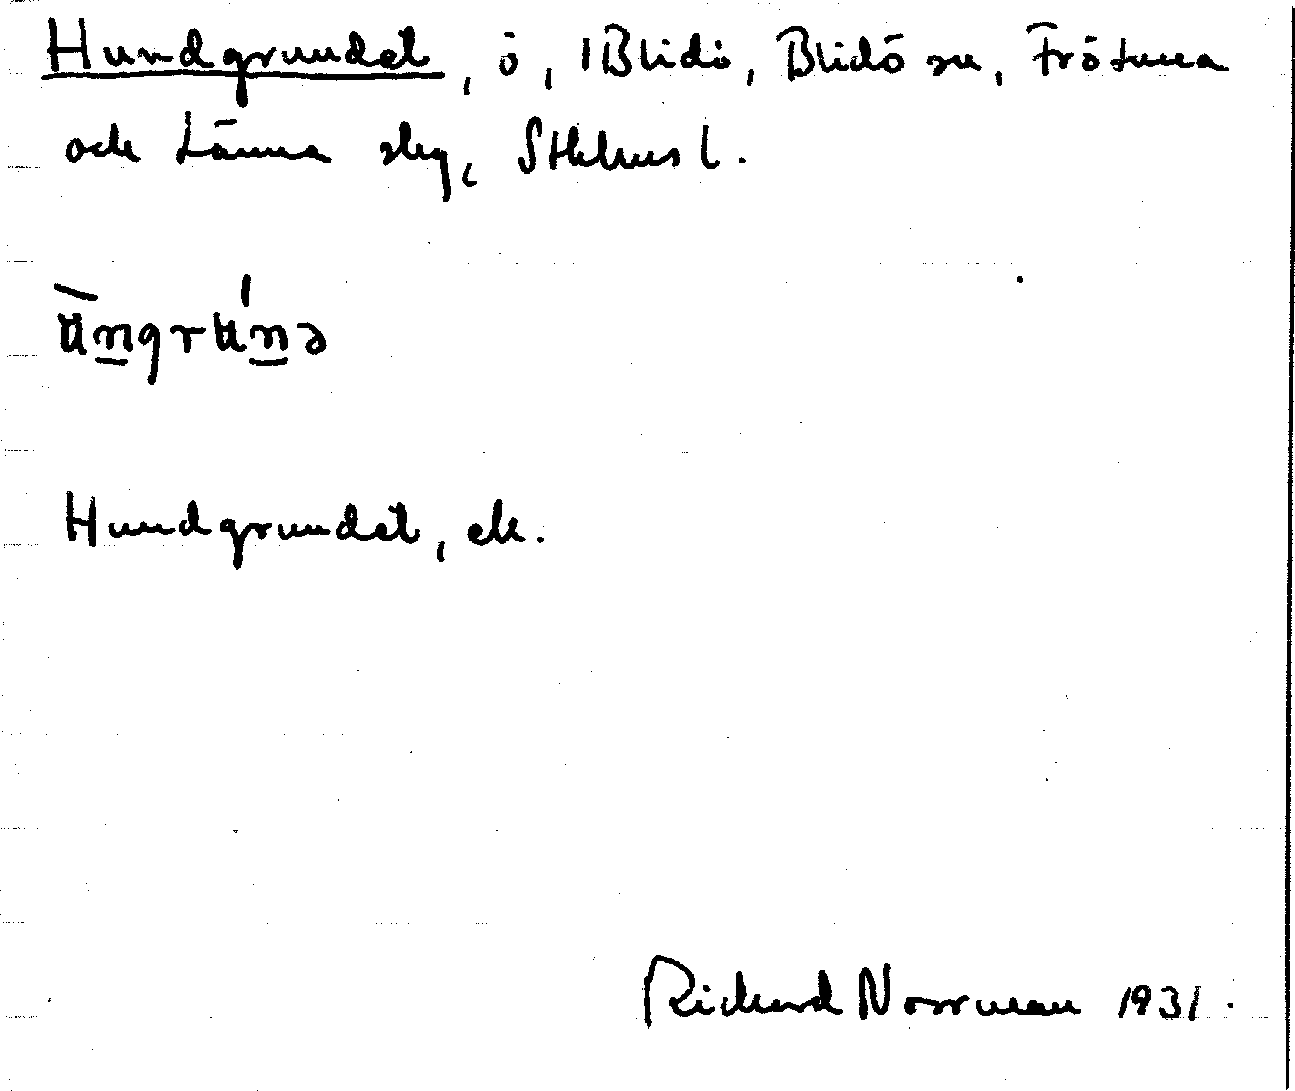 Hundgrundet, ö, 1 Blidö, Blidö sn, Frötuna
och Länna skg, Sthlms l.
ùngrúnə
Hundgrundet, ek.
Rickard Norrman 1931.